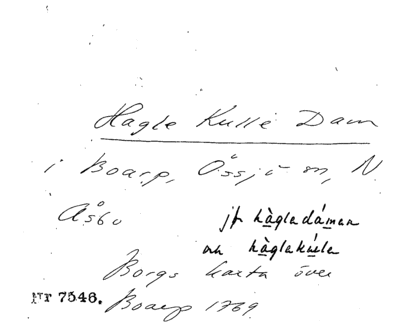 Hagle Kulle Dam
i Boarp, Össjö sn, N.
Åsbo
jfr hàgladámen
och hàglakúlen
Borgs karta över
Nr 7546. Boarp 1769